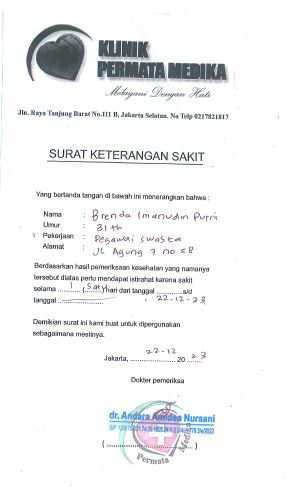 KLINIK
PERMATA MEDIKA
Melayani Dengan Hati
Jln. Raya Tanjung Barat No.111 B, Jakarta Selatan. No Telp 0217821817
SURAT KETERANGAN SAKIT
Yang bertanda tangan di bawah ini menerangkan bahwa :
Nama : Brenda Imanudin Putri
Umur : 31 th
Pekerjaan : Pegawai swasta
Alamat : JL Agung 7 no 58
Berdasarkan hasil pemeriksaan kesehatan yang namanya
tersebut diatas perlu mendapat istirahat karena sakit
selama ...1...(Satu) hari dari tanggal ............s/d
tanggal ................., 22-12-23
Demikian surat ini kami buat untuk dipergunakan
sebagaimana mestinya.
Jakarta, 22-12 20 23
Dokter pemeriksa
dr. Andara Nursani
Permata Medika